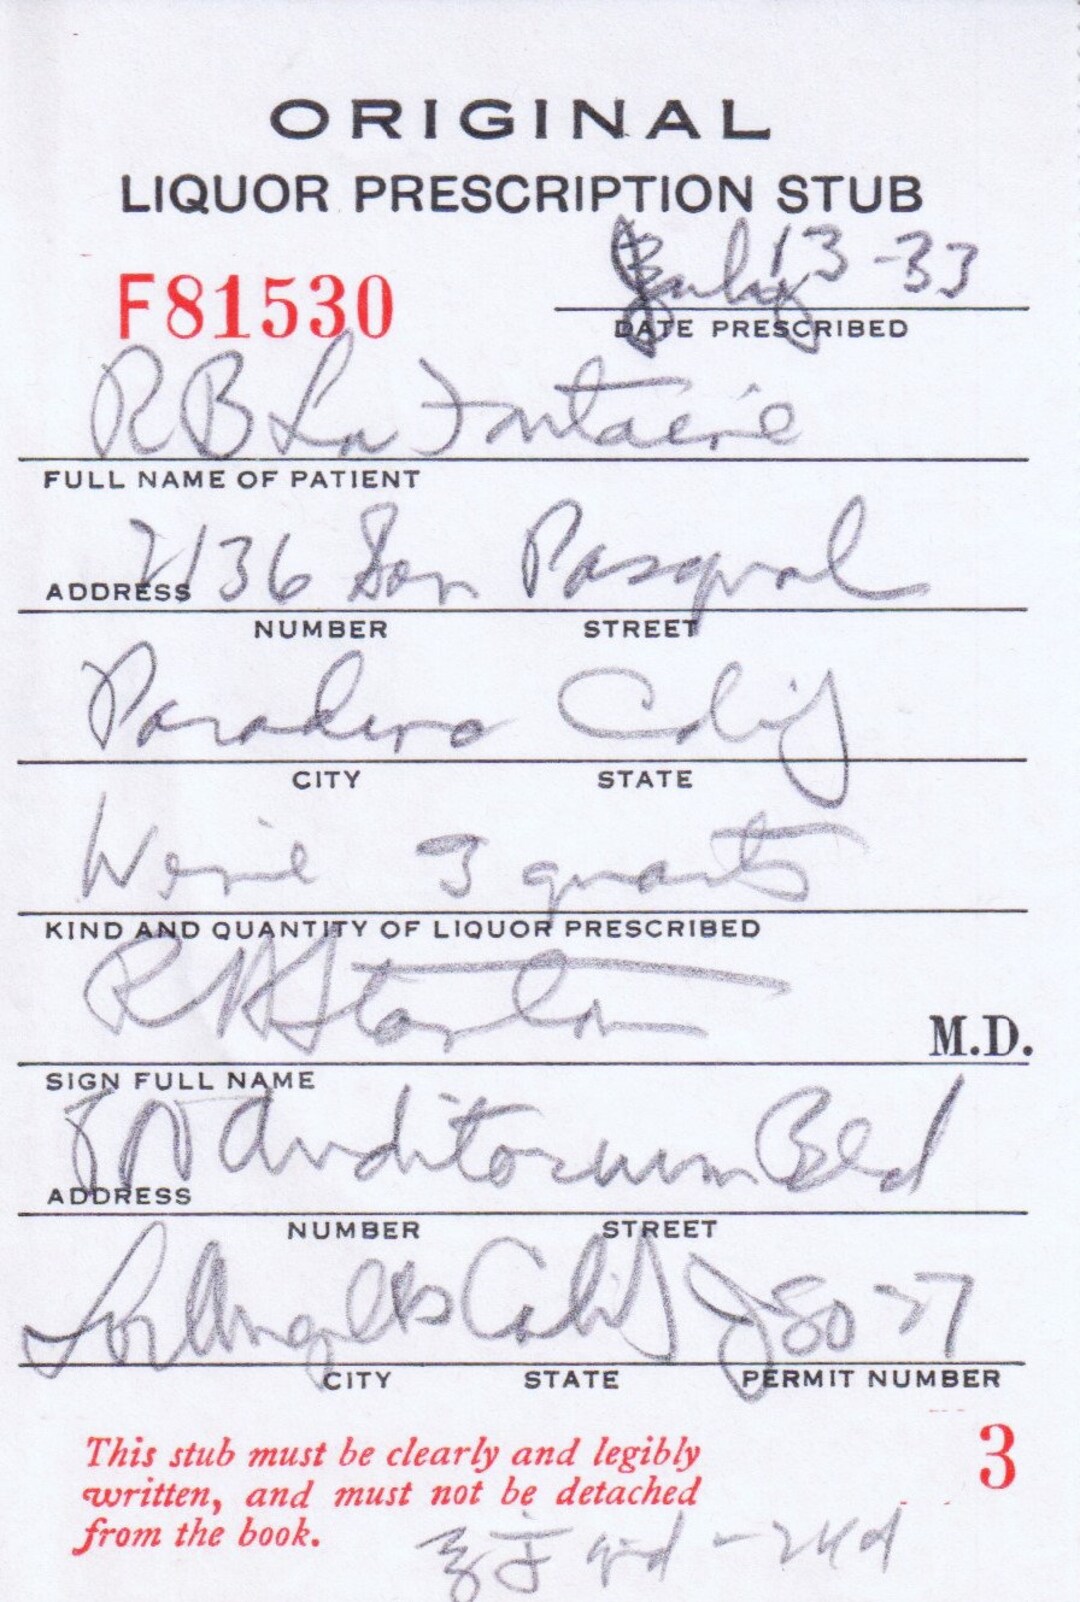 ORIGINAL
LIQUOR PRESCRIPTION STUB
July 13-33
F81530
DATE PRESCRIBED
R B La Fontaine
FULL NAME OF PATIENT
2136 San Pasqual
ADDRESS
NUMBER STREET
Pasadena Calif
CITY STATE
Wine 3 quarts
KIND AND QUANTITY OF LIQUOR PRESCRIBED
R H Stanton
M.D.
SIGN FULL NAME
Auditorium Bld
ADDRESS
NUMBER STREET
Los Angeles Calif
CITY STATE PERMIT NUMBER
This stub must be clearly and legibly
written, and must not be detached
from the book.
3